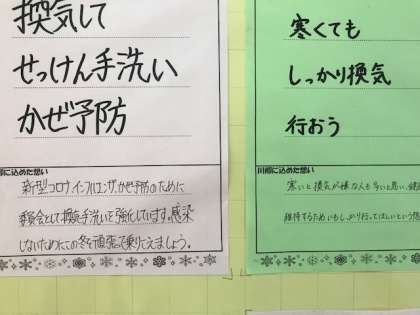 換気して
せっけん手洗い
かぜ予防
に込めた想い
新型コロナ インフルエンザ、かぜ予防のために
委員会として換気手洗いを強化しています。感染
しないためにこの冬を頑張って乗りこえましょう。
寒くても
しっかり換気
行おう
川柳に込めた想い
寒いと換気が嫌な人も多いと思い、健
維持するためにもしっかり行ってほしいという想